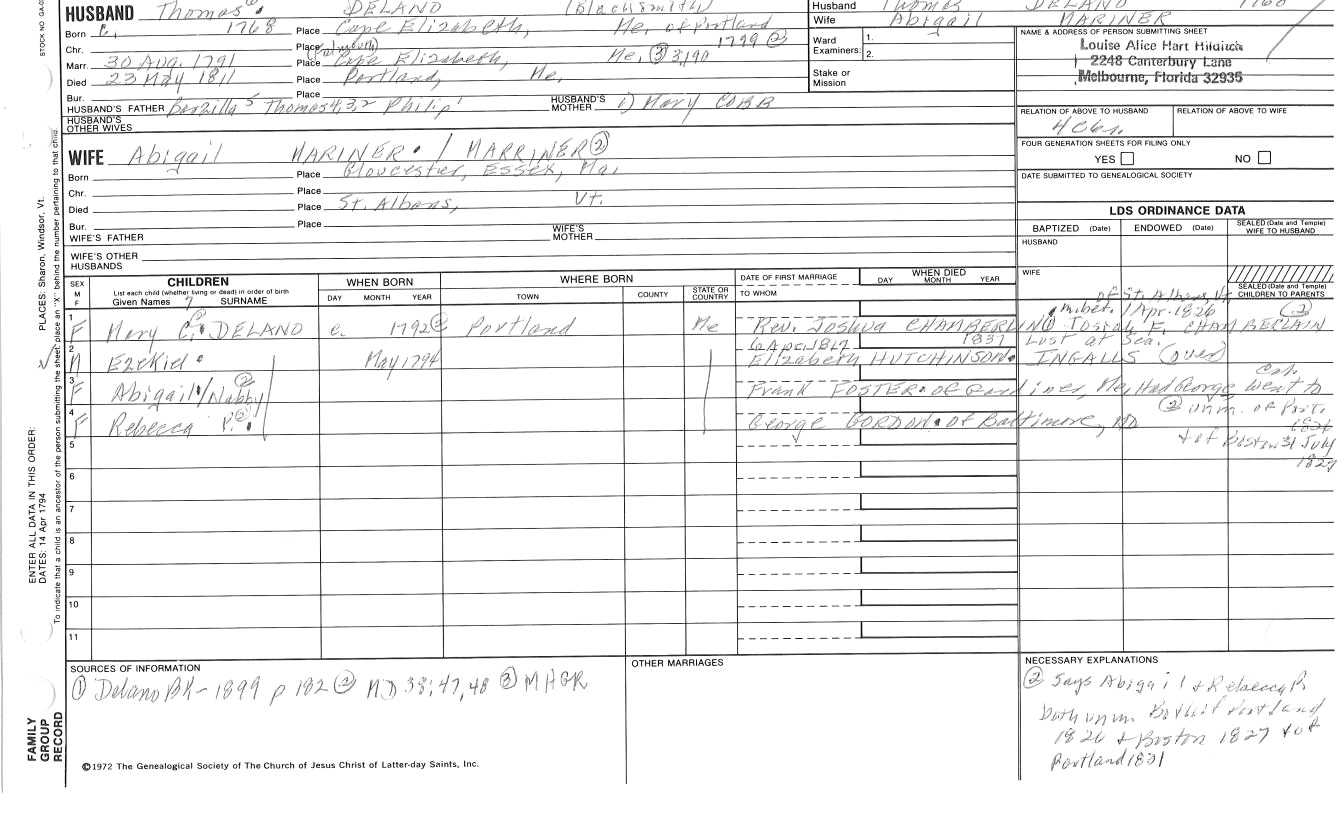 STOCK NO. GA-0
HUSBAND Thomas 6. DELANO (Blacksmith)
Born c. 1768 Place Cape Elizabeth, Me, of Portland
Chr. Place (Falmouth) 1799 ②
Marr. 30 Aug. 1791 Place Cape Elizabeth, Me, ③ 3;190
Died 23 May 1811 Place Portland, Me,
Bur. Place
HUSBAND'S FATHER Barzilla 5 Thomas 4,3,2 Philip 1 HUSBAND'S MOTHER 1) Mary COBB
HUSBAND'S OTHER WIVES
WIFE Abigail MARINER. / MARRINER ②
Born Place Gloucester, ESSEX, Ma,
Chr. Place
Died Place St. Albans, Vt.
Bur. Place
WIFE'S FATHER WIFE'S MOTHER
WIFE'S OTHER HUSBANDS
Husband Thomas DELANO 1768
Wife Abigail MARINER
Ward Examiners: 1.
2.
Stake or Mission
NAME & ADDRESS OF PERSON SUBMITTING SHEET
Louise Alice Hart
2248 Canterbury Lane
Melbourne, Florida 32935
RELATION OF ABOVE TO HUSBAND RELATION OF ABOVE TO WIFE
FOUR GENERATION SHEETS FOR FILING ONLY
YES NO
DATE SUBMITTED TO GENEALOGICAL SOCIETY
LDS ORDINANCE DATA
BAPTIZED (Date) ENDOWED (Date) SEALED (Date and Temple) WIFE TO HUSBAND
HUSBAND
WIFE
SEALED (Date and Temple) CHILDREN TO PARENTS
SEX M F
CHILDREN
List each child (whether living or dead) in order of birth
Given Names 7 SURNAME
WHEN BORN
DAY MONTH YEAR
WHERE BORN
TOWN COUNTY STATE OR COUNTRY
DATE OF FIRST MARRIAGE
TO WHOM
WHEN DIED
DAY MONTH YEAR
of St. Albans, Vt
1 F Mary C. P. DELANO c. 1792 ② Portland Me Rev. Joshua CHAMBERLIN
m. 1 Apr. 1826 ②
Josiah F. CHAMBERLAIN
2 M Ezekiel. May 1794 6 Apr. 1817 1837 Lost at Sea.
Elizabeth HUTCHINSON. INGALLS (over)
3 F Abigail. / Nabby ② Frank FOSTER. of Gardiner, Me, Had George went to Cal.
4 F Rebecca P. ② . George GORDON. of Baltimore, MD
② unm. of Port. 1826
+ of Boston 31 July 1827
5
6
7
8
9
10
11
SOURCES OF INFORMATION
① Delano BK - 1899 p 182 ② MD 38; 47, 48 ③ MHGR
OTHER MARRIAGES
NECESSARY EXPLANATIONS
② Says Abigail + Rebecca P.
both unm. Portland
1826 + Boston 1827 + of
Portland 1831
©1972 The Genealogical Society of The Church of Jesus Christ of Latter-day Saints, Inc.
FAMILY GROUP RECORD
ENTER ALL DATA IN THIS ORDER:
DATES: 14 Apr 1794
PLACES: Sharon, Windsor, Vt.
To indicate that a child is an ancestor of the person submitting the sheet, place an "X" behind the number pertaining to that child.